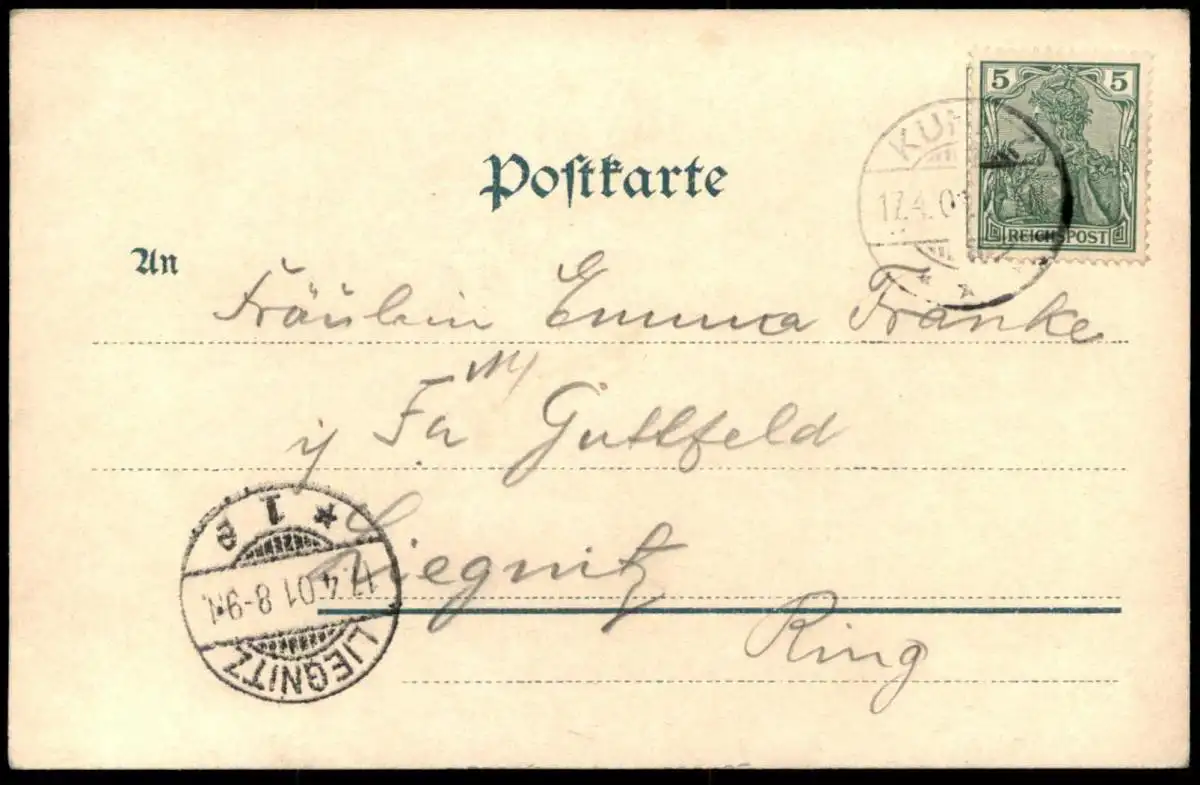 5 5
REICHSPOST
KUN
17.4.01
Postkarte
An
Fräulein Emma Franke
Fa Guttfeld
Liegnitz
Ring
LIEGNITZ
17.4.01 8-9N.
* 1 e